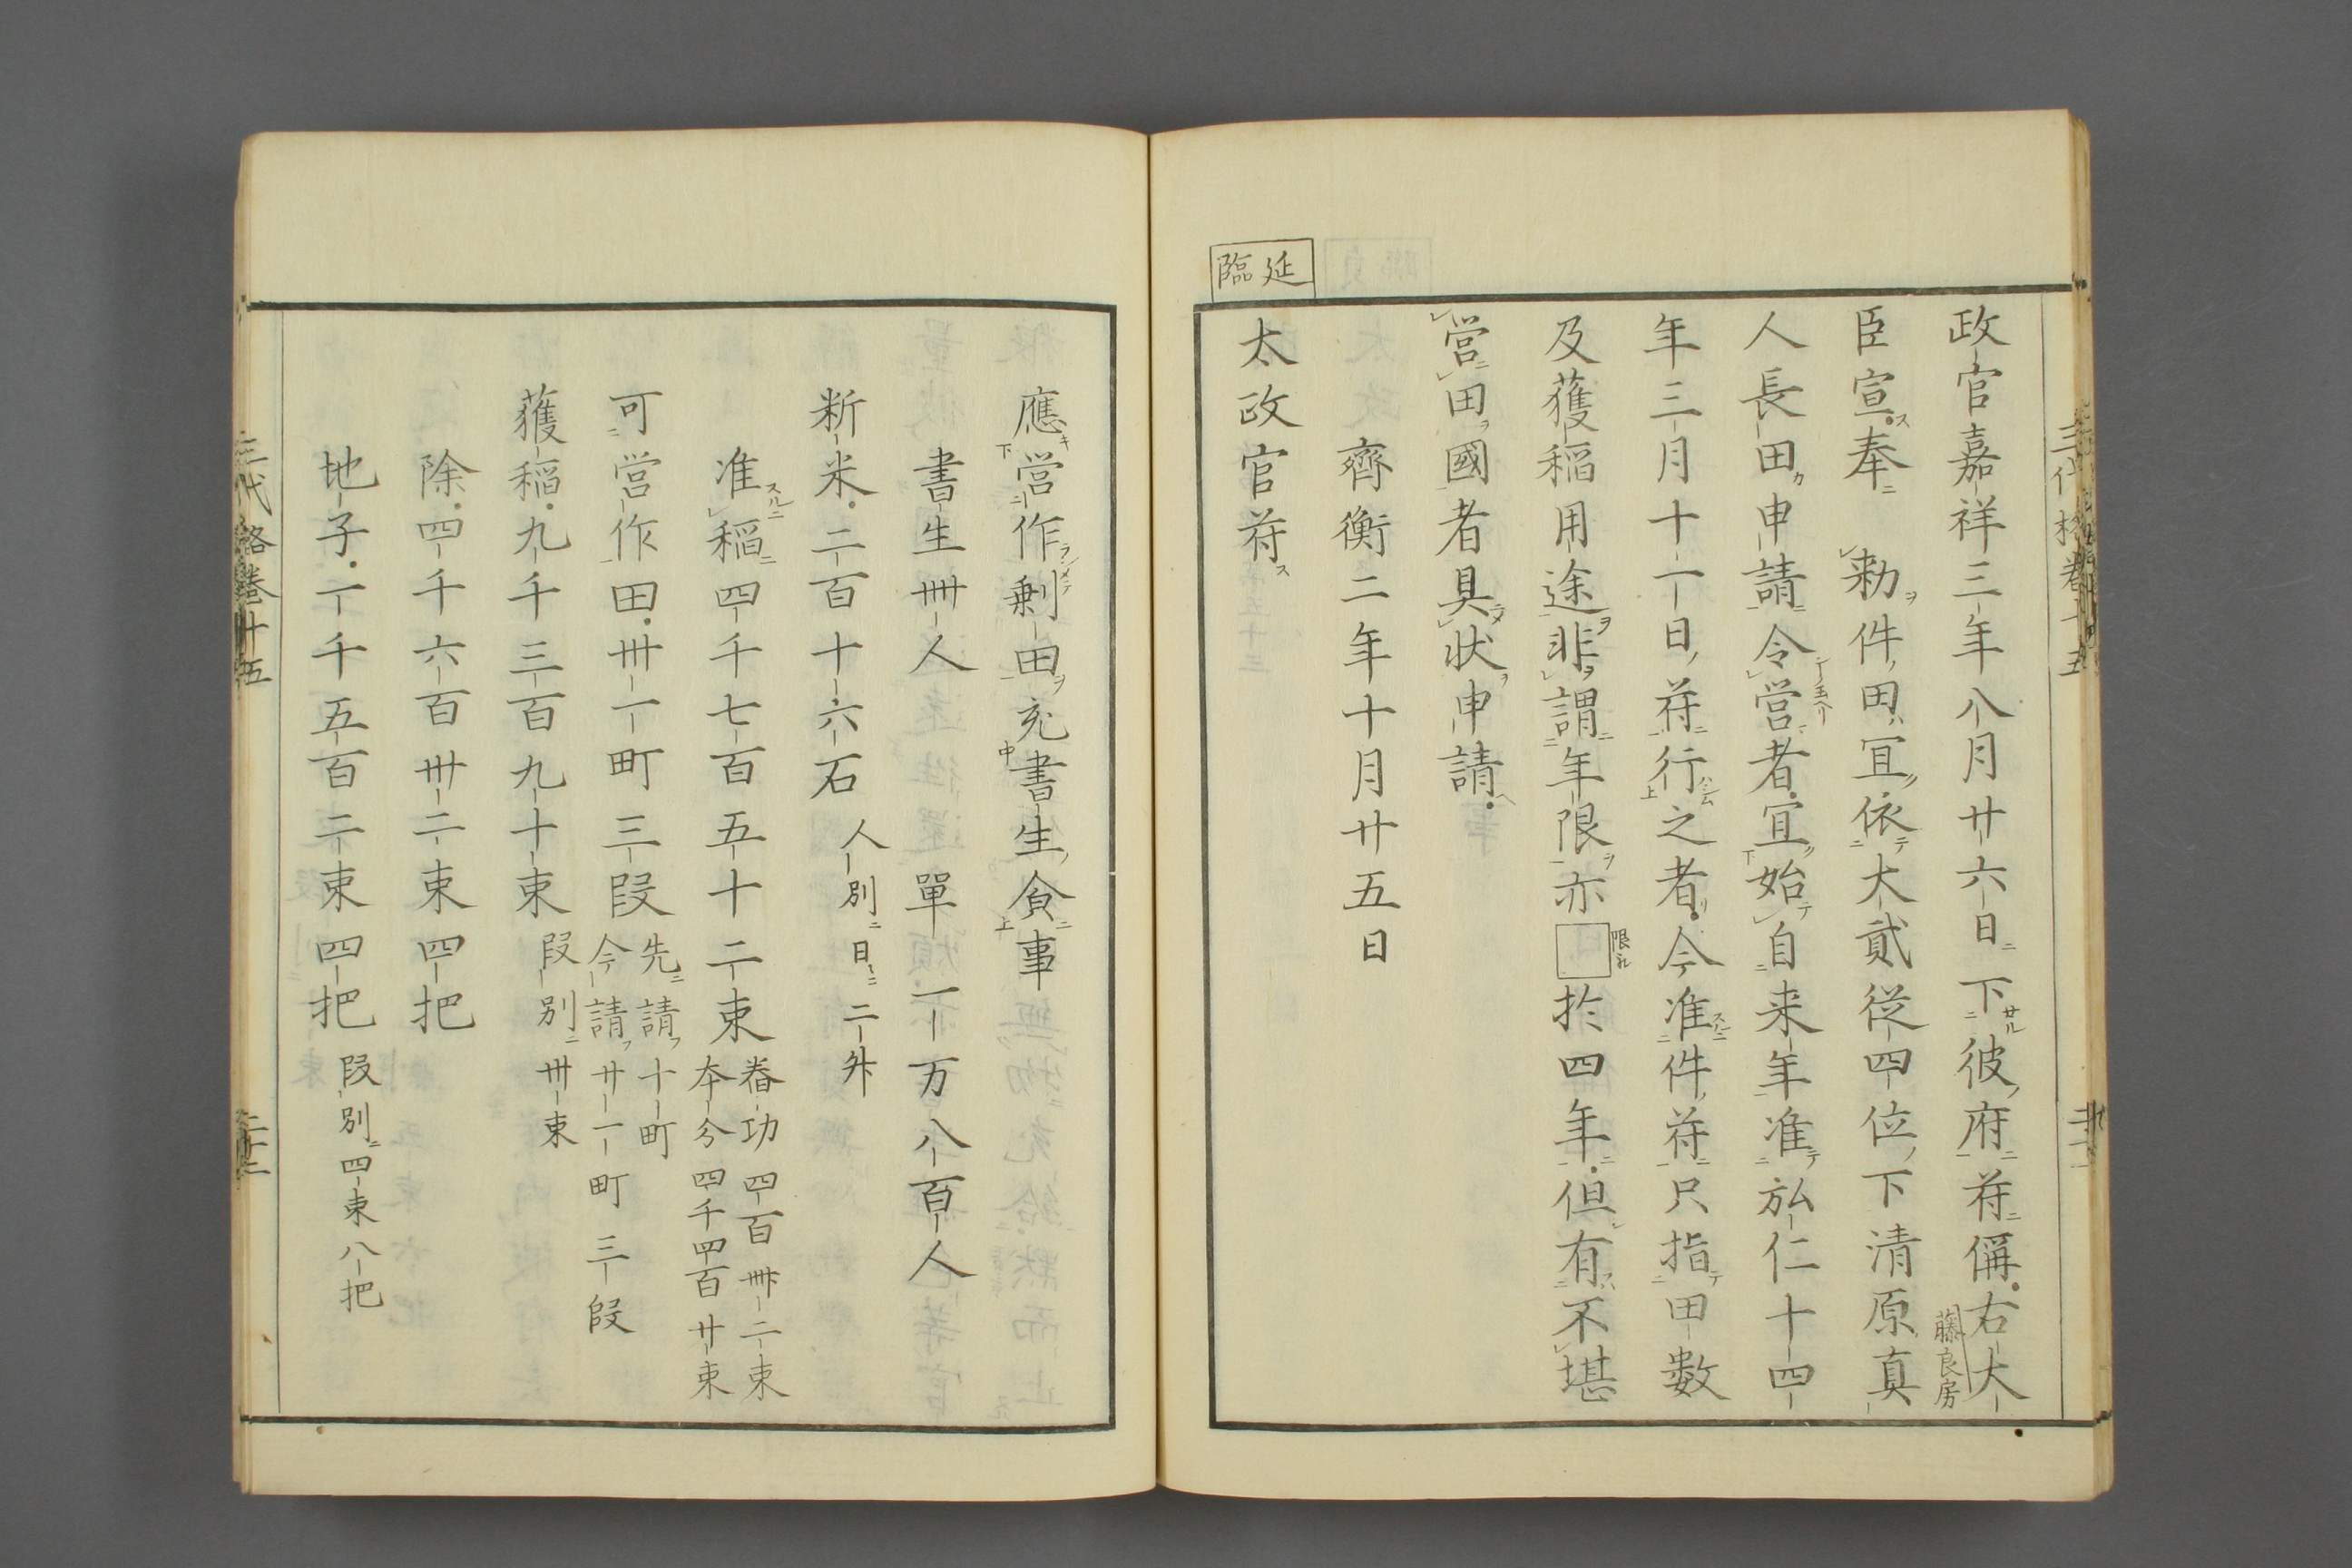 政官嘉祥三年八月廿六日下彼府符偁右大
藤良房
臣宣奉　勅件田宜依大貳從四位下清原真
人長田申請令営者宜始自来年准弘仁十四
年三月十一日符行之者今准件符只指田数
及獲稲用途非謂年限亦□於四年但有不堪
限
営田國者具状申請
齊衡二年十月廿五日
延臨
太政官符
應営作剰田充書生食事
書生卌人　單一万八百人
新米二百十六石　人別日二升
准稲四千七百五十二束　舂功四百卌二束
本分四千四百廿束
可営作田卅一町三段　先請十町
今請廿一町三段
獲稲九千三百九十束　段別卅束
除四千六百卅二束四把
地子一千五百二束四把　段別四束八把
三代格巻十五